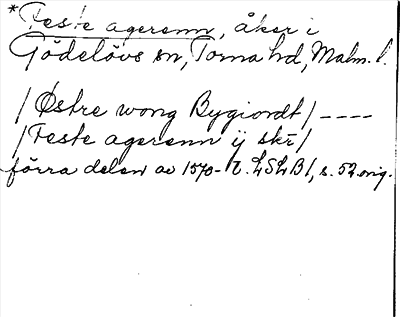 *Feste agerenn, åker i
Gödelövs sn, Torna hd, Malm. l.
/Østre wong Bygiordt/ ----
/Feste agerenn ij skr̄/
förra delen av 1570-t. LSLB1, s. 52 orig.